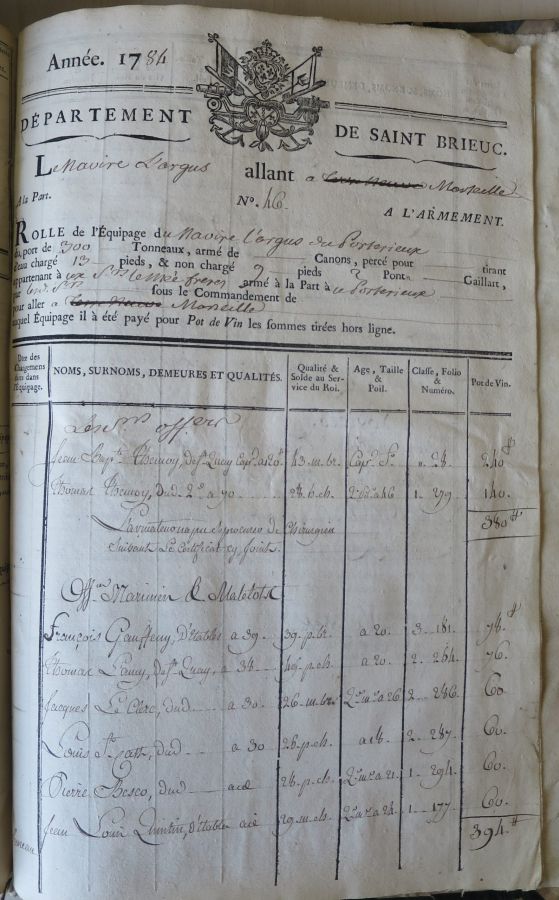 Année. 1784
DÉPARTEMENT
DE SAINT BRIEUC.
Le Navire L'argus allant a Marseille
A la Part. N°. 46. A L'ARMEMENT.
ROLLE de l'Équipage du Navire L'argus du Portérieux
du port de 300 Tonneaux, armé de Canons, percé pour tirant
d'eau chargé 13 pieds, & non chargé 9 pieds 2 Ponts Gaillart,
appartenant à freres armé à la Part à Portérieux
sous le Commandement de
pour aller à Terre Neuve Marseille
auquel Équipage il a été payé pour Pot de Vin les sommes tirées hors ligne.
Date des Changemens dans l'Équipage.
NOMS, SURNOMS, DEMEURES ET QUALITÉS.
Qualité & Solde au Service du Roi.
Age, Taille & Poil.
Classe, Folio & Numéro.
Pot de Vin.
Les Srs offers
Jean Bapte Themoy, de St Quay 43. m. br. 24. 240
Thomas Themoy, dud. 2e a 70 28. b. ch. 1. 279. 140.
380
L'armateur n'a pu se procurer de Chirurgien
suivant Le Certificat cy joint.
Offers Mariniers & Matelots
François Gauffeny, D'Etables a 39. 39. p. br. a 20. 3. 181. 78
Thomas Lamy, de St Quay, a 38. 40. p. ch. a 20. 2. 264. 76.
Jacques Le Clerc, dud a 30. 26. m. br. a 26 2. 286. 60
Louis dud a 30 26. p. ch. 2. 287. 60.
Pierre Besco, dud 28. p. ch. a 21. 1. 294. 60.
Jean Louis Quintin, d'Etables 29. m. ch. a 24. 1. 177. 60.
394